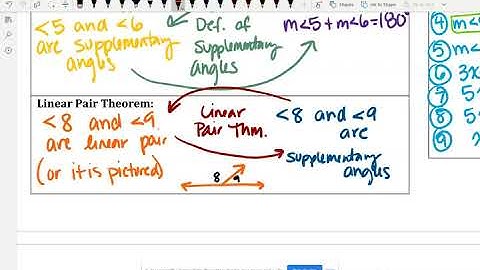 <5 and <6
are supplementary
angles
Def. of
supplementary
angles
m<5 + m<6 = 180°
Linear Pair Theorem:
<8 and <9
are linear pair
(or it is pictured)
Linear
Pair Thm.
<8 and <9
are
supplementary
angles
8 9
④ m<
⑤ m<
⑥ 3x
⑦ 5
⑧ 5
⑨